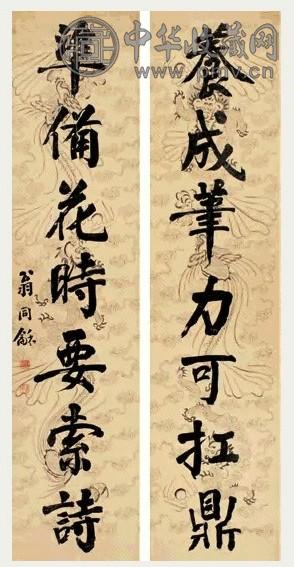 養成筆力可扛鼎
準備花時要索詩
翁同龢
中华收藏网
www.pmv.cn